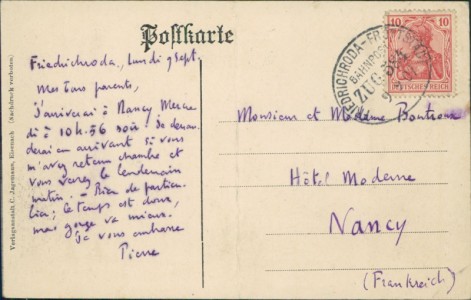 Postkarte
Friedrichroda, lundi 9 Sept.
Mes bons parents,
J'arriverai à Nancy Mercre
di à 10h.56 soir. Je deman
derai en arrivant si vous
m'avez retenu chambre et
vous verrez le lendemain
matin. - Rien de particu
lier; le temps est doux,
mon gorge va mieux.
Je vous embrasse
Pierre
Monsieur et Madame Boutroux
Hôtel Moderne
Nancy
(Frankreich)
Verlagsanstalt C. Jagemann, Eisenach (Nachdruck verboten)
FRIEDRICHRODA-FRÖTTSTÄDT
BAHNPOST
ZUG 594
10 10
DEUTSCHES REICH